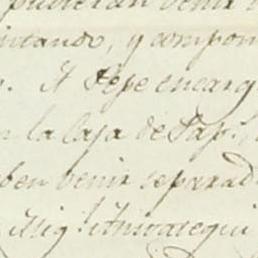 pudieran venir
intando, y compon
A Pepe encarg
n la Caja de Pap.
ben venir separad
Mig.l Amoategui